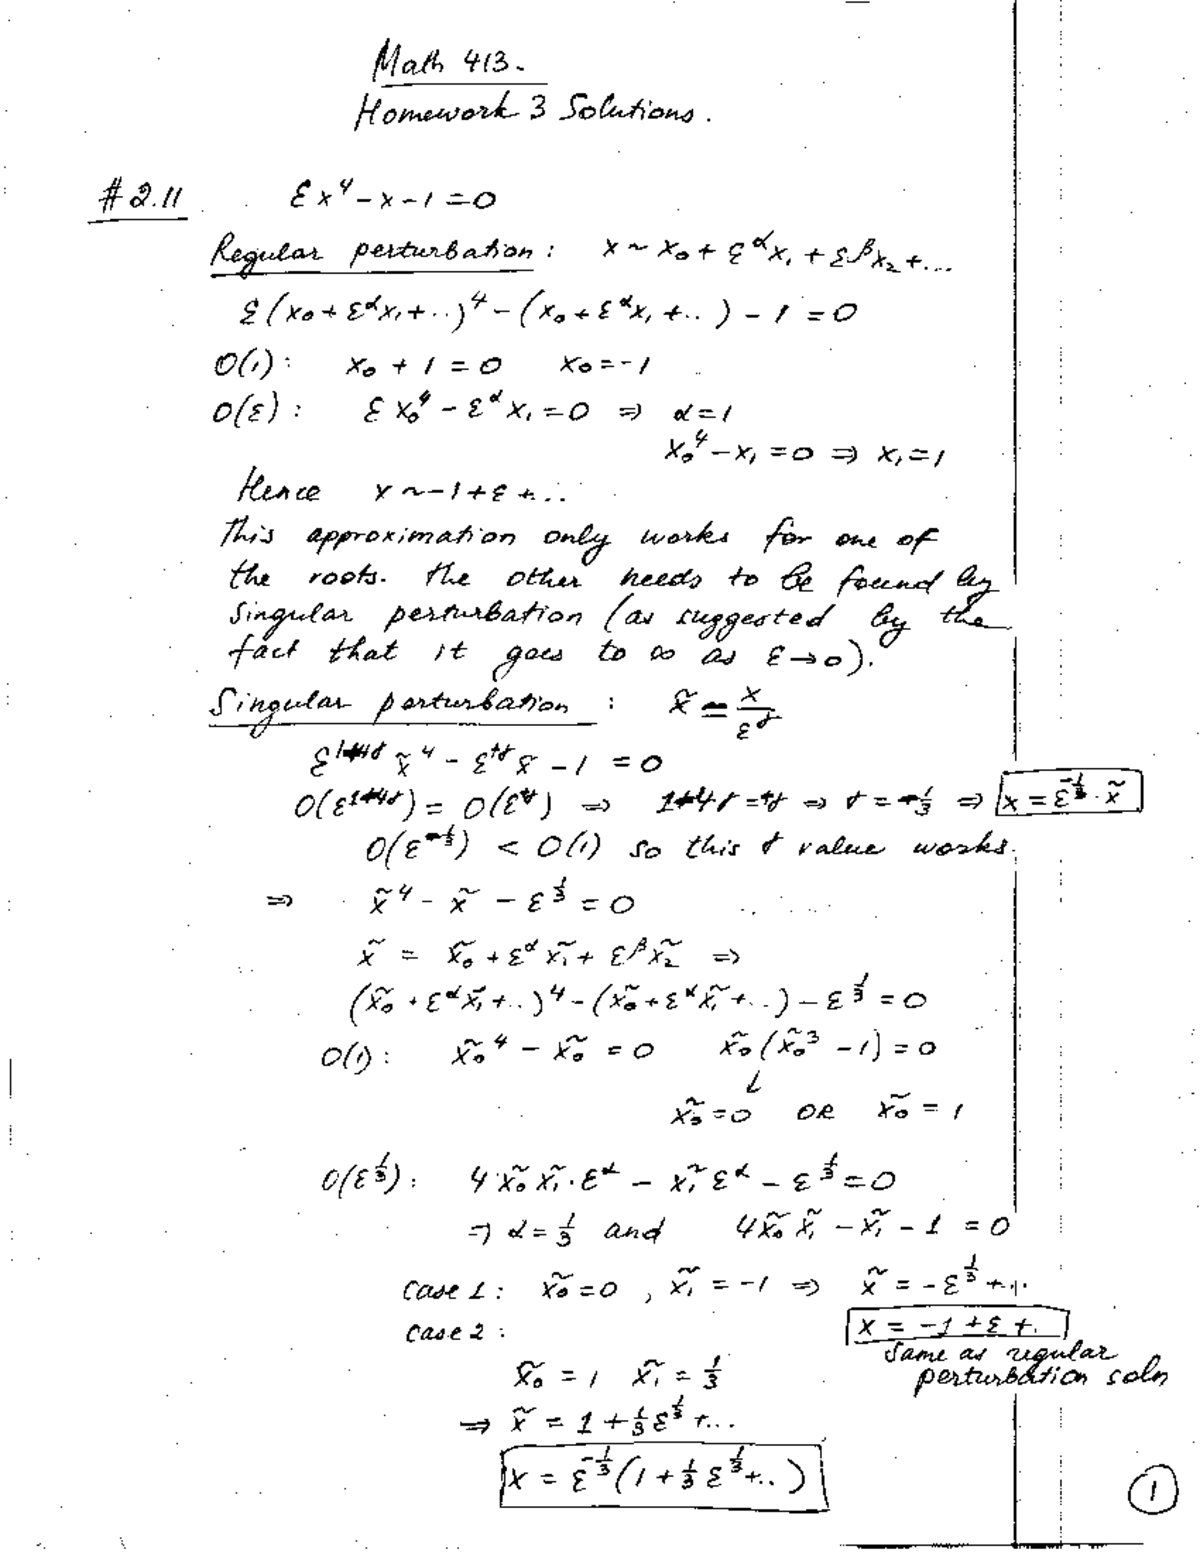 Math 413.
Homework 3 Solutions.
#2.11 εx⁴ - x - 1 = 0
Regular perturbation: x ~ x₀ + ε^α x₁ + ε^β x₂ + ...
ε(x₀ + ε^α x₁ + ..)⁴ - (x₀ + ε^α x₁ + ..) - 1 = 0
O(1): x₀ + 1 = 0 x₀ = -1
O(ε): εx₀⁴ - ε^α x₁ = 0 ⇒ α = 1
x₀⁴ - x₁ = 0 ⇒ x₁ = 1
Hence x ~ -1 + ε + ...
This approximation only works for one of
the roots. The other needs to be found by
Singular perturbation (as suggested by the
fact that it goes to ∞ as ε → 0).
Singular perturbation: x̃ = x/ε^γ
ε^(1+4γ) x̃⁴ - ε^(+γ) x̃ - 1 = 0
O(ε^(1+4γ)) = O(ε^γ) ⇒ 1+4γ = +γ ⇒ γ = -1/3 ⇒ x = ε^(-1/3) · x̃
O(ε^(-1/3)) < O(1) so this γ value works.
⇒ x̃⁴ - x̃ - ε^(1/3) = 0
x̃ = x̃₀ + ε^α x̃₁ + ε^β x̃₂ ⇒
(x̃₀ + ε^α x̃₁ + ..)⁴ - (x̃₀ + ε^α x̃₁ + ..) - ε^(1/3) = 0
O(1): x̃₀⁴ - x̃₀ = 0 x̃₀(x̃₀³ - 1) = 0
↓
x̃₀ = 0 OR x̃₀ = 1
O(ε^(1/3)): 4x̃₀x̃₁·ε^α - x̃₁ε^α - ε^(1/3) = 0
⇒ α = 1/3 and 4x̃₀x̃₁ - x̃₁ - 1 = 0
Case 1: x̃₀ = 0, x̃₁ = -1 ⇒ x̃ = -ε^(1/3) + ...
x = -1 + ε + ..
Case 2:
Same as regular
perturbation soln
x̃₀ = 1 x̃₁ = 1/3
⇒ x̃ = 1 + 1/3 ε^(1/3) + ...
x = ε^(-1/3)(1 + 1/3 ε^(1/3) + ..)
1